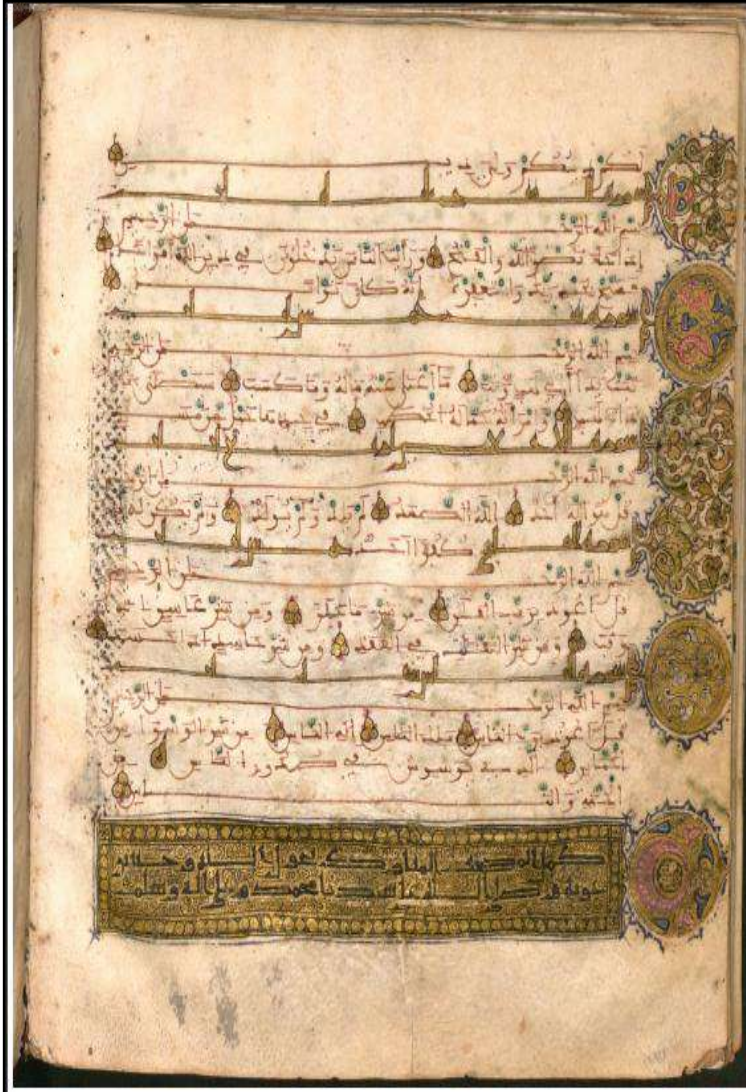 لكم دينكم ولي دين
سورة
بسم الله الرحمن الرحيم
إذا جاء نصر الله والفتح ورأيت الناس يدخلون في دين الله أفواجا
فسبح بحمد ربك واستغفره إنه كان توابا
سورة
بسم الله الرحمن الرحيم
تبت يدا أبي لهب وتب ما أغنى عنه ماله وما كسب سيصلى نارا
ذات لهب وامرأته حمالة الحطب في جيدها حبل من مسد
سورة الإخلاص أربع آيات
بسم الله الرحمن الرحيم
قل هو الله أحد الله الصمد لم يلد ولم يولد ولم يكن له
سورة الفلق كفوا أحد خمس آيات
بسم الله الرحمن الرحيم
قل أعوذ برب الفلق من شر ما خلق ومن شر غاسق إذا
وقب ومن شر النفاثات في العقد ومن شر حاسد إذا حسد
سورة الناس
بسم الله الرحمن الرحيم
قل أعوذ برب الناس ملك الناس إله الناس من شر الوسواس
الخناس الذي يوسوس في صدور الناس من
الجنة والناس
كمل المصحف المبارك بحول الله وحسن
عونه وصلى الله على سيدنا محمد وعلى آله وسلم